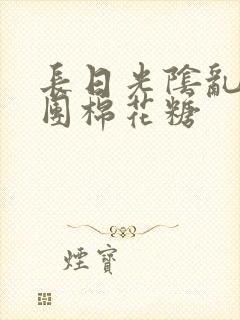 長日光陰亂
團棉花糖
煙寶